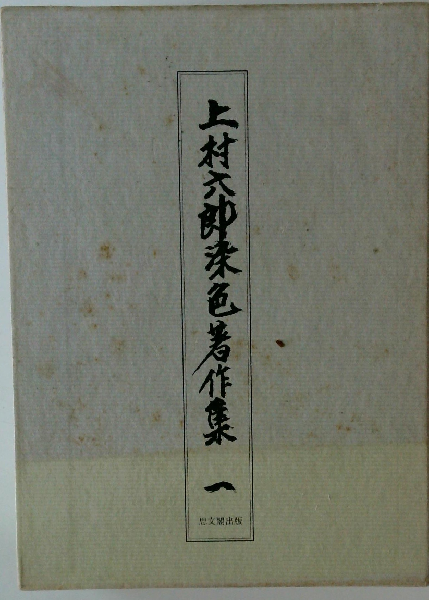 上村六郎染色著作集 一
思文閣出版